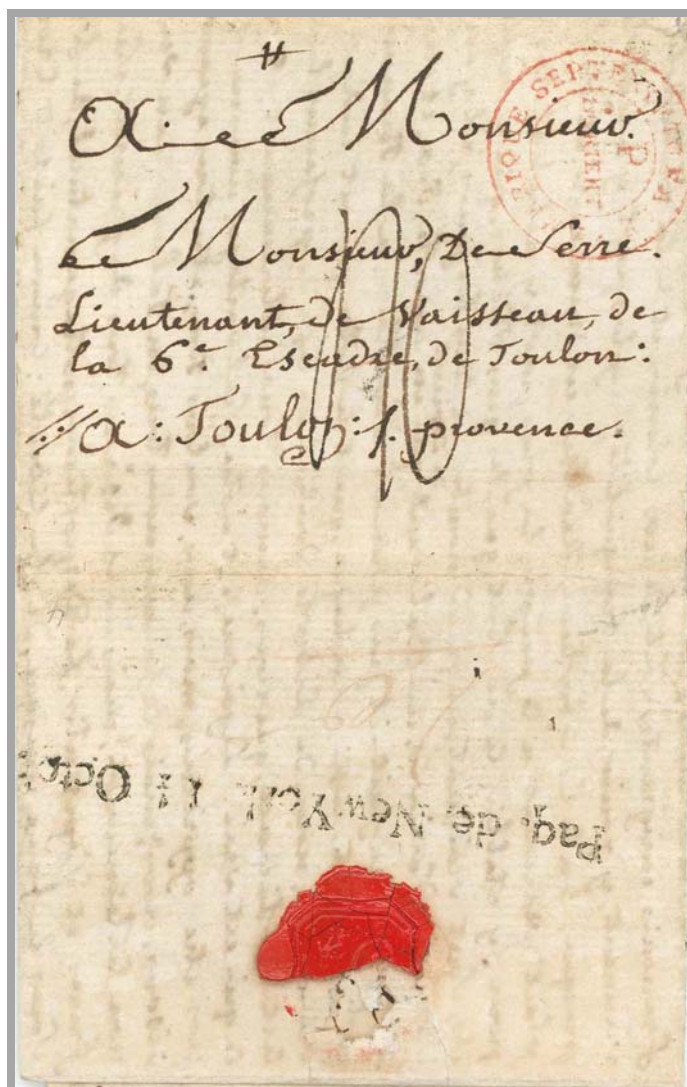 A Monsieur.
Monsieur, De Serre.
Lieutenant, de Vaisseau, de
la 6.e Escadre, de Toulon:
A: Toulon: /. provence.
Paq. de New York 11 Octo